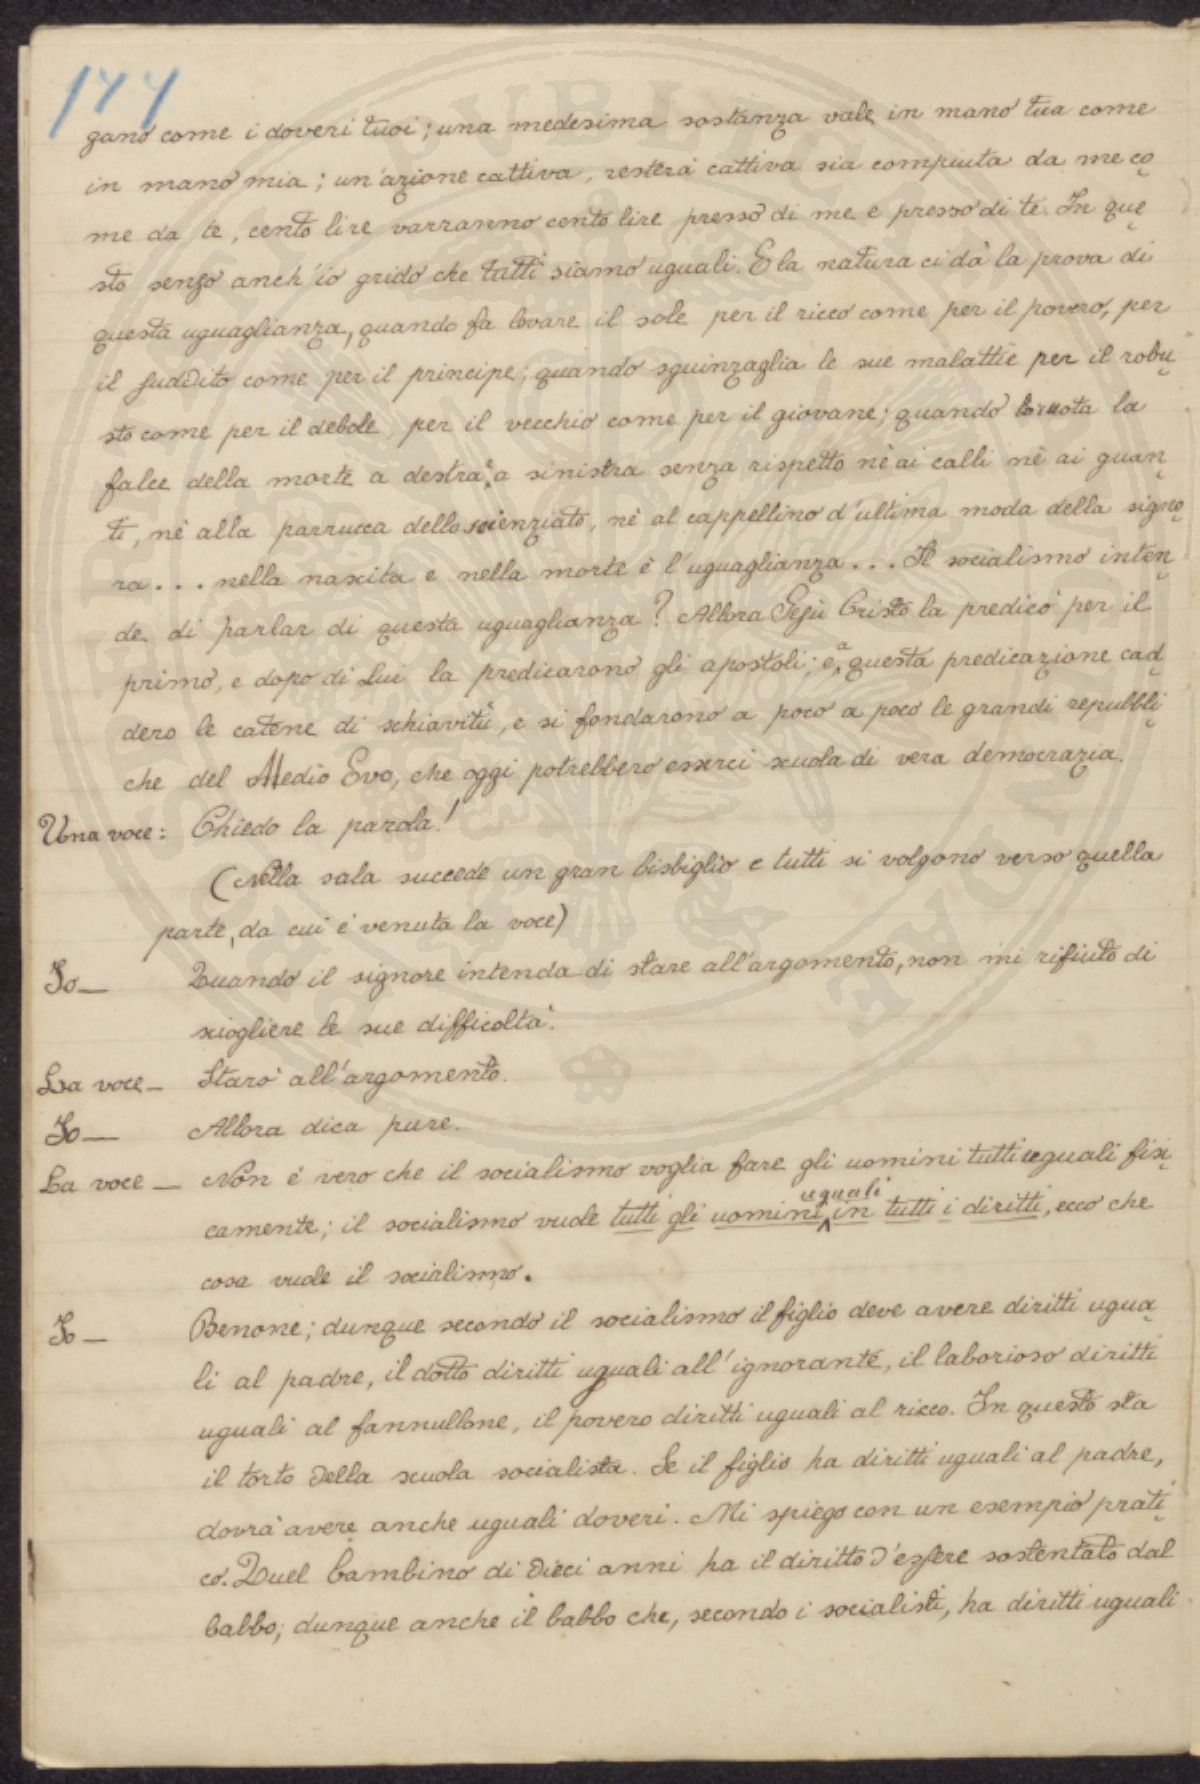 177
gano come i doveri tuoi; una medesima sostanza vale in mano tua come
in mano mia; un'azione cattiva, resterà cattiva sia compiuta da me co
me da te, cento lire varranno cento lire presso di me e presso di te. In que
sto senso anch'io grido che tutti siamo uguali. E la natura ci dà la prova di
questa uguaglianza, quando fa levare il sole per il ricco come per il povero, per
il suddito come per il principe; quando sguinzaglia le sue malattie per il robu
sto come per il debole, per il vecchio come per il giovane; quando la
falce della morte a destra e a sinistra senza rispetto nè ai calli nè ai guan
ti, nè alla parrucca dello scienziato, nè al cappellino d'ultima moda della signo
ra... nella nascita e nella morte è l'uguaglianza... Il socialismo inten
de di parlar di questa uguaglianza? Allora Gesù Cristo la predicò per il
primo, e dopo di Lui la predicarono gli apostoli; e a questa predicazione cad
dero le catene di schiavitù, e si fondarono a poco a poco le grandi repubbli
che del Medio Evo, che oggi potrebbero esserci scuola di vera democrazia.
Una voce: Chiedo la parola!
(Nella sala succede un gran bisbiglio e tutti si volgono verso quella
parte, da cui è venuta la voce)
Io— Quando il signore intenda di stare all'argomento, non mi rifiuto di
sciogliere le sue difficoltà.
La voce— Starò all'argomento.
Io— Allora dica pure.
La voce— Non è vero che il socialismo voglia fare gli uomini tutti uguali fisi
camente; il socialismo vuole tutti gli uomini uguali in tutti i diritti, ecco che
cosa vuole il socialismo.
Io— Benone; dunque secondo il socialismo il figlio deve avere diritti ugua
li al padre, il dotto diritti uguali all'ignorante, il laborioso diritti
uguali al fannullone, il povero diritti uguali al ricco. In questo sta
il torto della scuola socialista. Se il figlio ha diritti uguali al padre,
dovrà avere anche uguali doveri. Mi spiego con un esempio prati
co. Quel bambino di dieci anni ha il diritto d'essere sostentato dal
babbo; dunque anche il babbo che, secondo i socialisti, ha diritti uguali